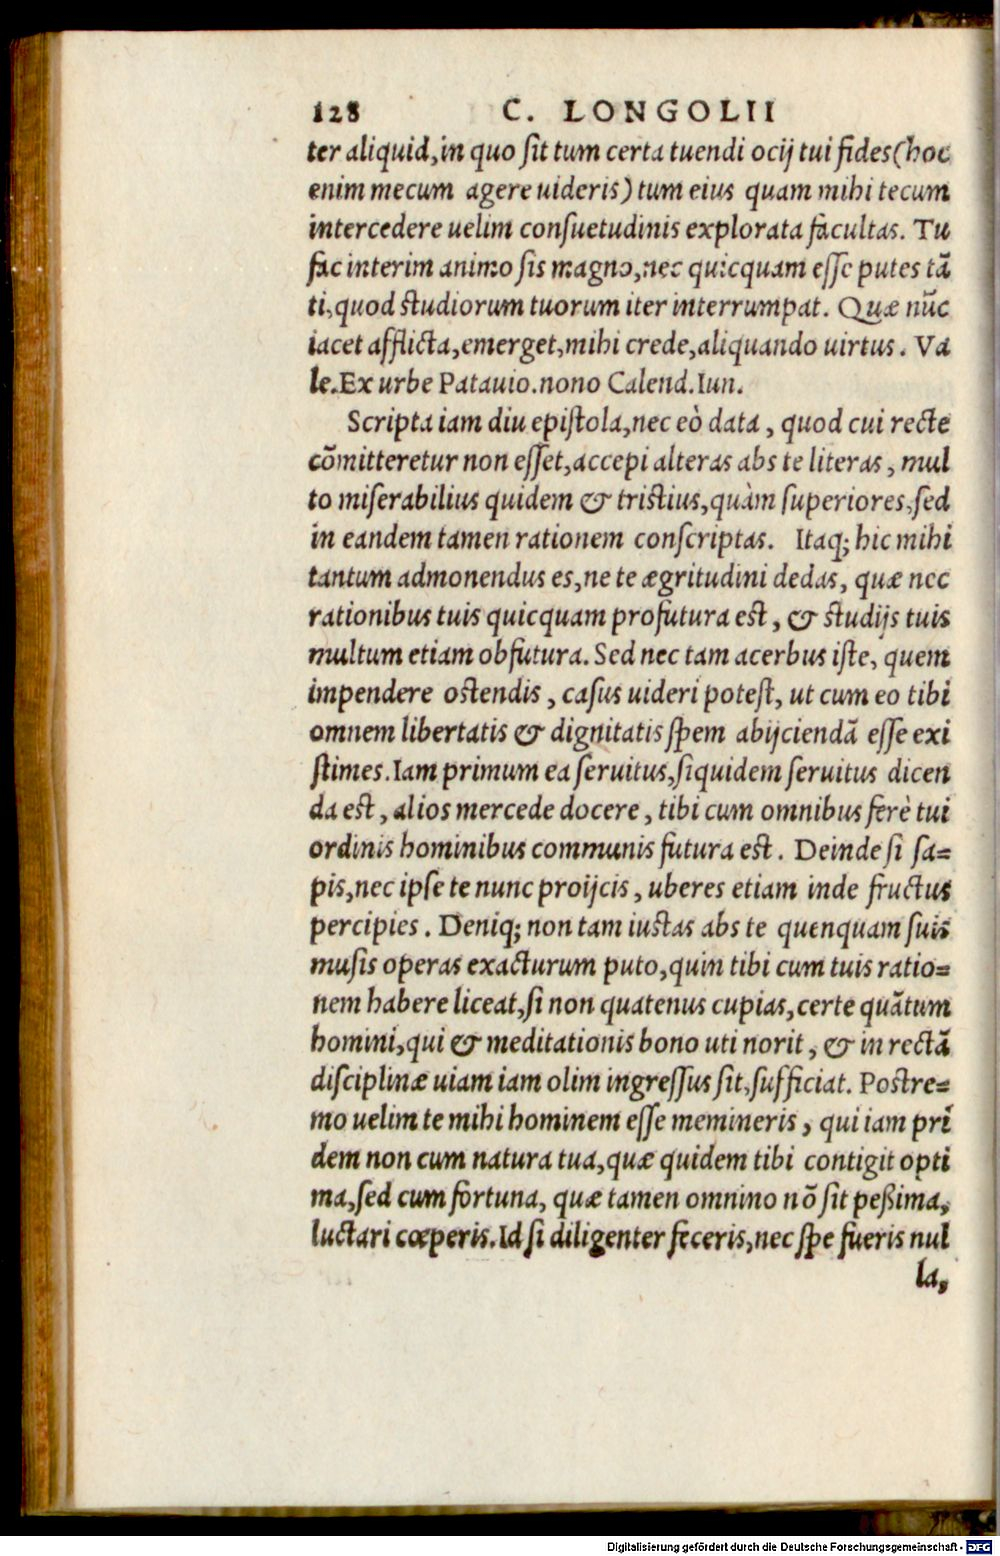 128 C. LONGOLII
ter aliquid, in quo sit tum certa tuendi ocij tui fides (hoc
enim mecum agere uideris) tum eius quam mihi tecum
intercedere uelim consuetudinis explorata facultas. Tu
fac interim animo sis magno, nec quicquam esse putes tā
ti, quod studiorum tuorum iter interrumpat. Quæ nūc
iacet afflicta, emerget, mihi crede, aliquando uirtus. Va
le. Ex urbe Patauio. nono Calend. Iun.
Scripta iam diu epistola, nec eò data, quod cui recte
cōmitteretur non esset, accepi alteras abs te literas, mul
to miserabilius quidem & tristius, quàm superiores, sed
in eandem tamen rationem conscriptas. Itaq; hic mihi
tantum admonendus es, ne te ægritudini dedas, quæ nec
rationibus tuis quicquam profutura est, & studijs tuis
multum etiam obfutura. Sed nec tam acerbus iste, quem
impendere ostendis, casus uideri potest, ut cum eo tibi
omnem libertatis & dignitatis spem abijciendā esse exi
stimes. Iam primum ea seruitus, siquidem seruitus dicen
da est, alios mercede docere, tibi cum omnibus ferè tui
ordinis hominibus communis futura est. Deinde si sa=
pis, nec ipse te nunc proijcis, uberes etiam inde fructus
percipies. Deniq; non tam iustas abs te quenquam suis
musis operas exacturum puto, quin tibi cum tuis ratio=
nem habere liceat, si non quatenus cupias, certe quātum
homini, qui & meditationis bono uti norit, & in rectā
disciplinæ uiam iam olim ingressus sit, sufficiat. Postre=
mo uelim te mihi hominem esse memineris, qui iam prī
dem non cum natura tua, quæ quidem tibi contigit opti
ma, sed cum fortuna, quæ tamen omnino nō sit peßima,
luctari cœperis. Id si diligenter feceris, nec spe fueris nul
la,
Digitalisierung gefördert durch die Deutsche Forschungsgemeinschaft - DFG